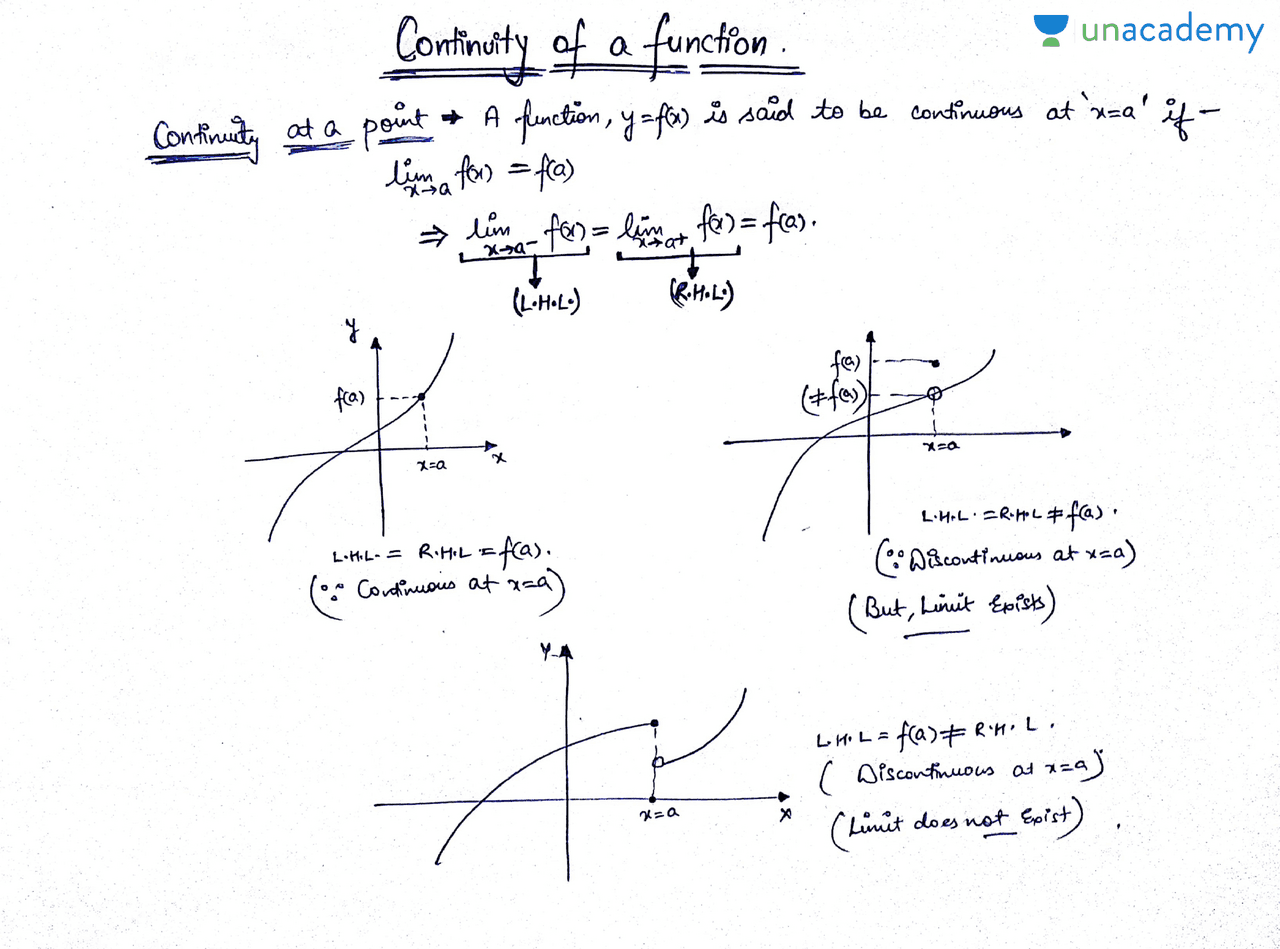 Continuity of a function.
unacademy
Continuity at a point → A function, y=f(x) is said to be continuous at 'x=a' if —
lim x→a f(x) = f(a)
⇒ lim x→a- f(x) = lim x→a+ f(x) = f(a).
(L.H.L.) (R.H.L.)
y
f(a)
x=a
x
L.H.L. = R.H.L = f(a).
(∵ Continuous at x=a)
f(a)
(≠f(a))
x=a
L.H.L. = R.H.L ≠ f(a).
(∵ Discontinuous at x=a)
(But, Limit Exists)
Y
x=a
x
L.H.L = f(a) ≠ R.H.L.
(Discontinuous at x=a)
(Limit does not Exist).